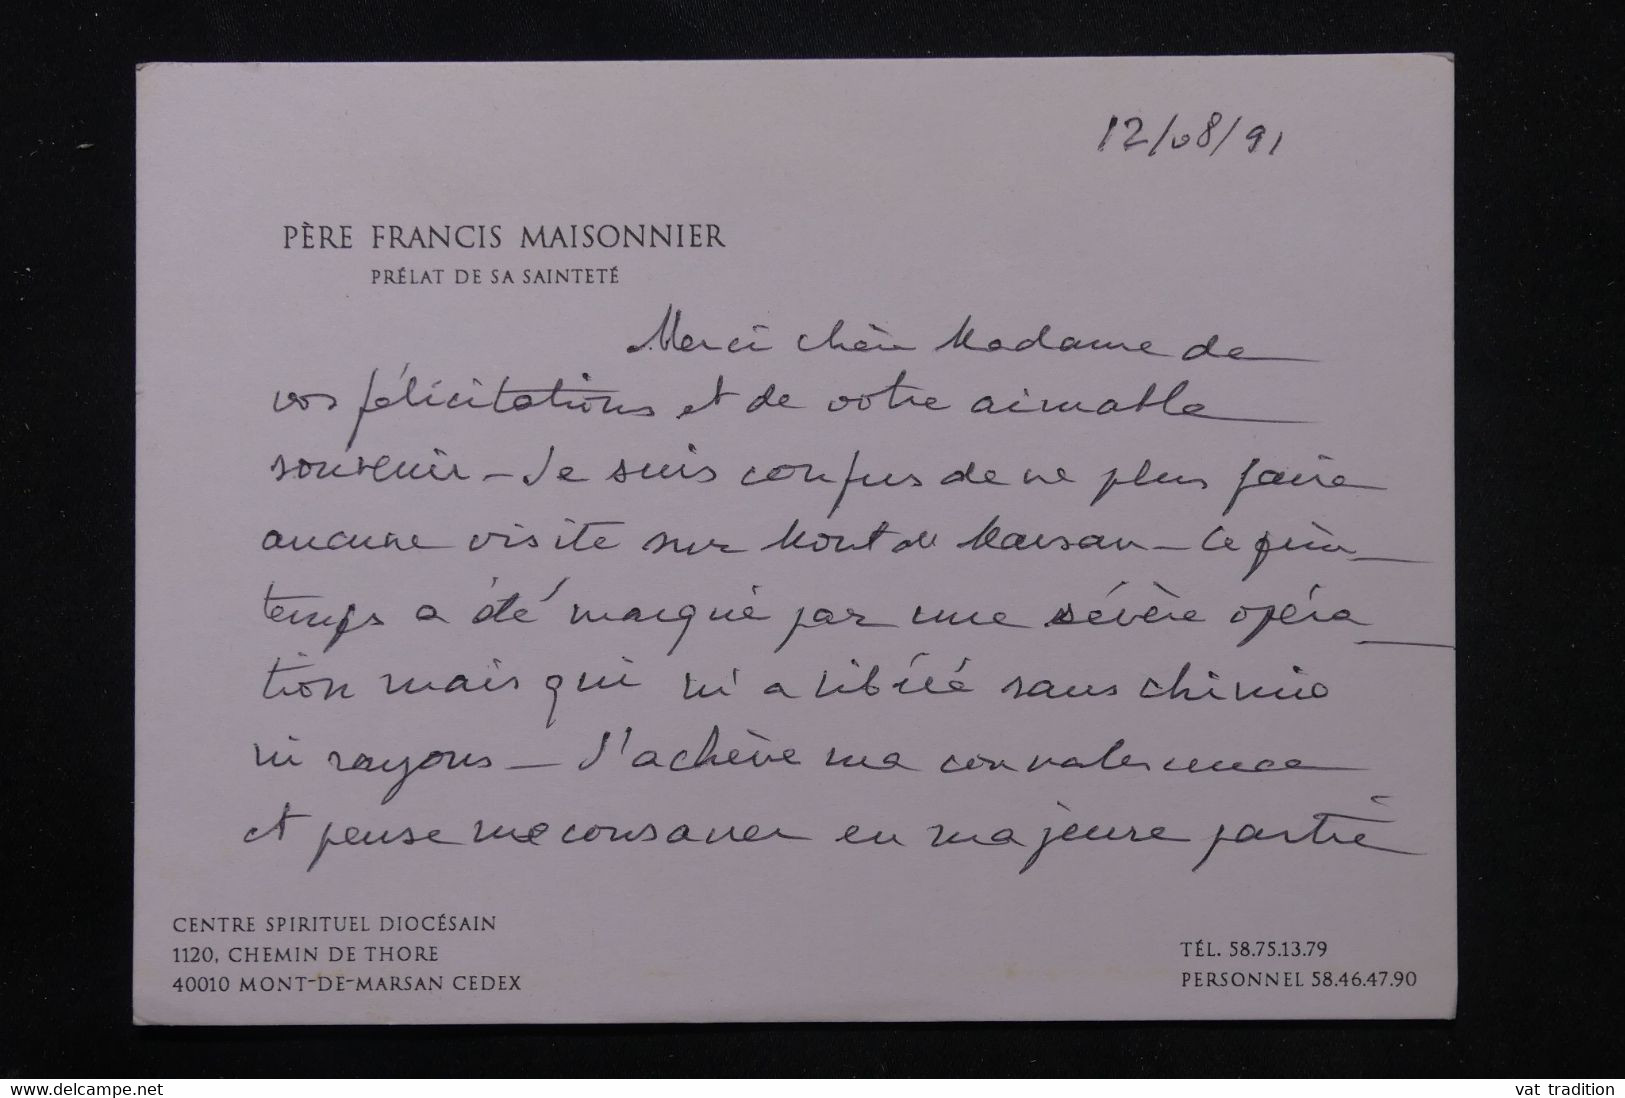 12/08/91
PÈRE FRANCIS MAISONNIER
PRÉLAT DE SA SAINTETÉ
Merci chère Madame de
vos félicitations et de votre aimable
souvenir – Je suis confus de ne plus faire
aucune visite sur Mont de Marsan – Ce prin
temps a été marqué par une sévère opéra
tion mais qui m'a libéré sans chimio
ni rayons – J'achève ma convalescence
et pense me consacrer en majeure partie
CENTRE SPIRITUEL DIOCÉSAIN
1120, CHEMIN DE THORE
40010 MONT-DE-MARSAN CEDEX
TÉL. 58.75.13.79
PERSONNEL 58.46.47.90
www.delcampe.net
vat_tradition